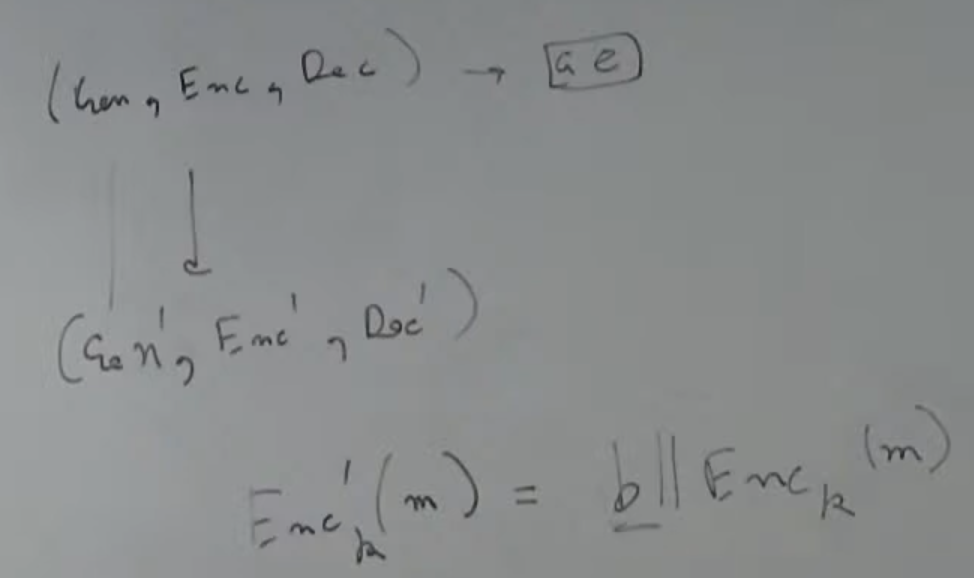 (Gen, Enc, Dec) → a e
(Gen', Enc', Dec')
Enc'ₖ(m) = b || Encₖ(m)